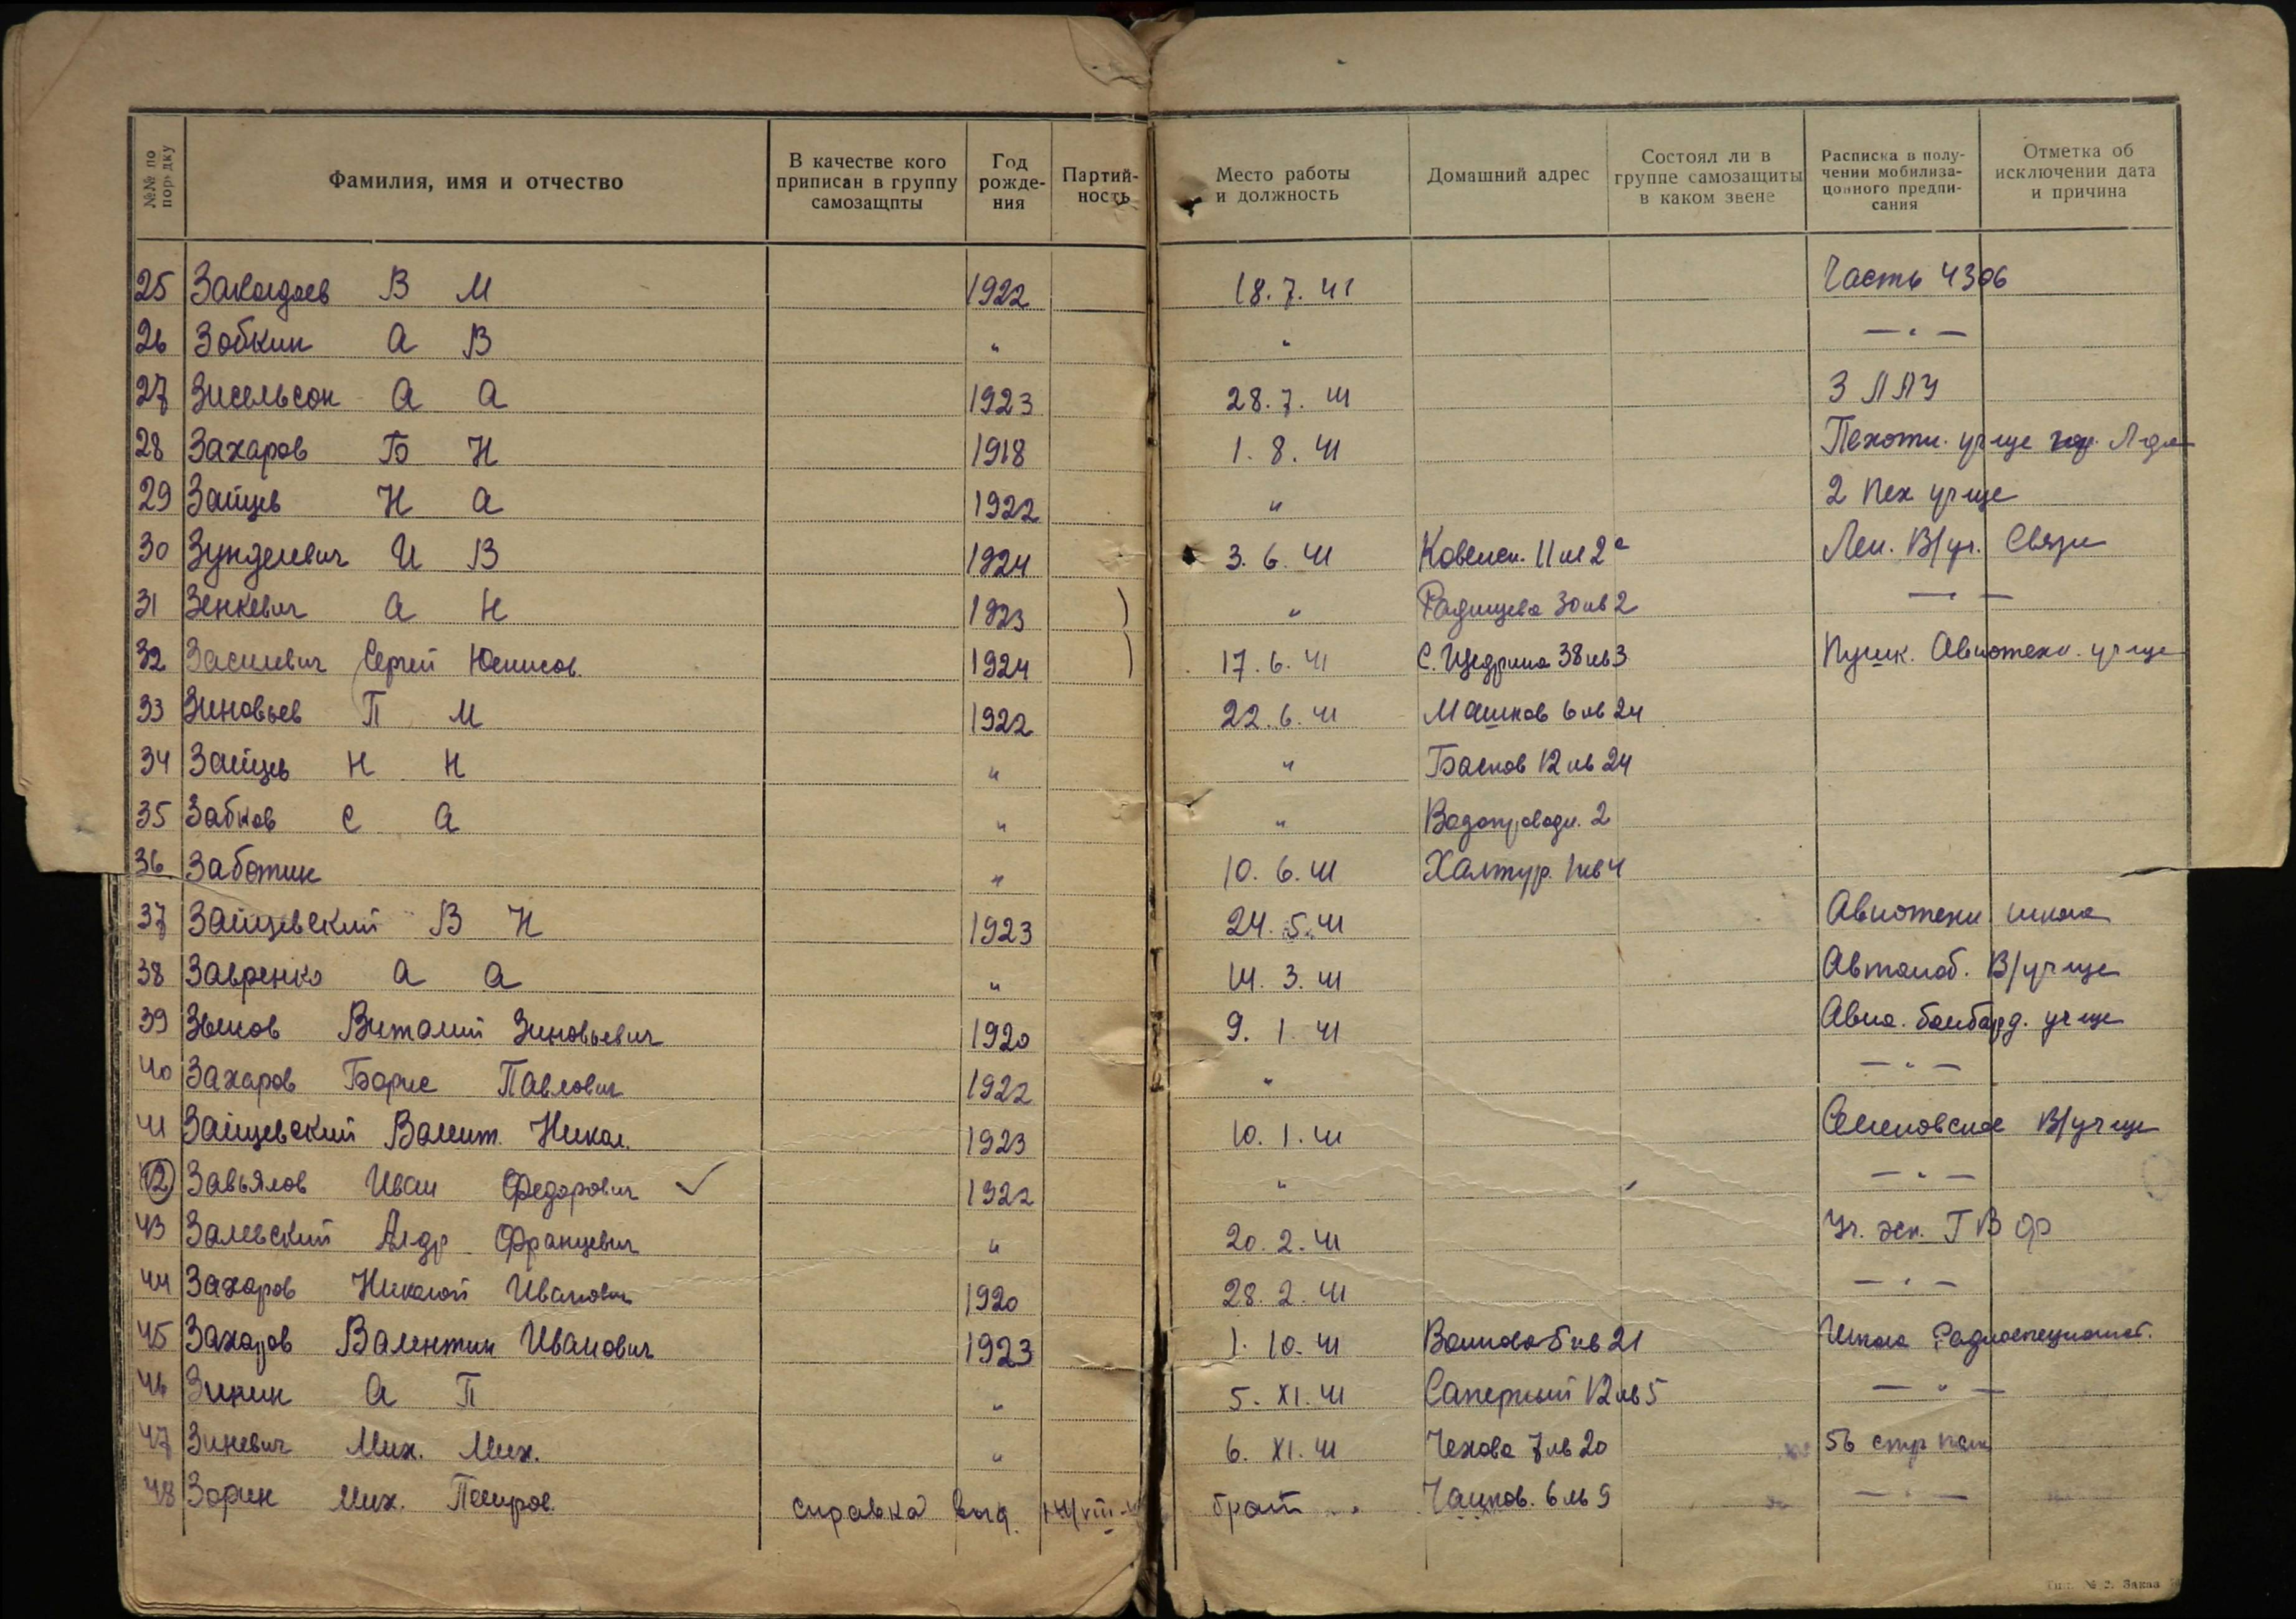 №№ по порядку Фамилия, имя и отчество В качестве кого приписан в группу самозащиты Год рождения Партийность Место работы и должность Домашний адрес Состоял ли в группе самозащиты в каком звене Расписка в получении мобилизационного предписания Отметка об исключении дата и причина
25 В М 1922 18.7.41 Часть 4306
26 Зобкин А В " " — " —
27 Зисельсон А А 1923 28.7.41 3 ЛПУ
28 Захаров Б Н 1918 1.8.41 Пехотн. уч-ще
29 Зайцев Н А 1922 " 2 пех уч-ще
30 Зунделевич И В 1924 3.6.41 Ковенск. 11 кв 2а Лен. В/уч. Связи
31 Зенкевич А Н 1923 " Радищева 30 кв 2 — " —
32 Засилевич Сергей 1924 17.6.41 С. Щедрина 38 кв 3 Пушк. Авиотехн. уч-ще
33 Зиновьев П М 1922 22.6.41 Машков 6 кв 24
34 Зайцев Н Н " " Басков 12 кв 24
35 Забков С А " " Водопроводн. 2
36 Заботин " 10.6.41 Халтур. 1 кв 4
37 Зайцевский В Н 1923 24.5.41 Авиотехн школа
38 Завренко А А " 14.3.41 Автомоб. В/уч-ще
39 Зыков Виталий Зиновьевич 1920 9.1.41 Авиа. бомбард. уч-ще
40 Захаров Борис Павлович 1922 " — " —
41 Зайцевский Валент. Никол. 1923 10.1.41 В/уч-ще
42 Завьялов Иван Федорович ✓ 1922 " — " —
43 Залевский Ал-др Францевич " 20.2.41 Уч. эск. ГВФ
44 Захаров Николай Иванович 1920 28.2.41 — " —
45 Захаров Валентин Иванович 1923 1.10.41 Воинова 5 кв 21 Школа Радиоспециалист.
46 Зинин А П " 5.XI.41 Саперный 12 кв 5 — " —
47 Зиневич Мих. Мих. " 6.XI.41 Чехова 7 кв 20 56 стр полк
48 Зорин Мих. справка выд. брат 6 кв 9 — " —
Тип. № 2. Заказ